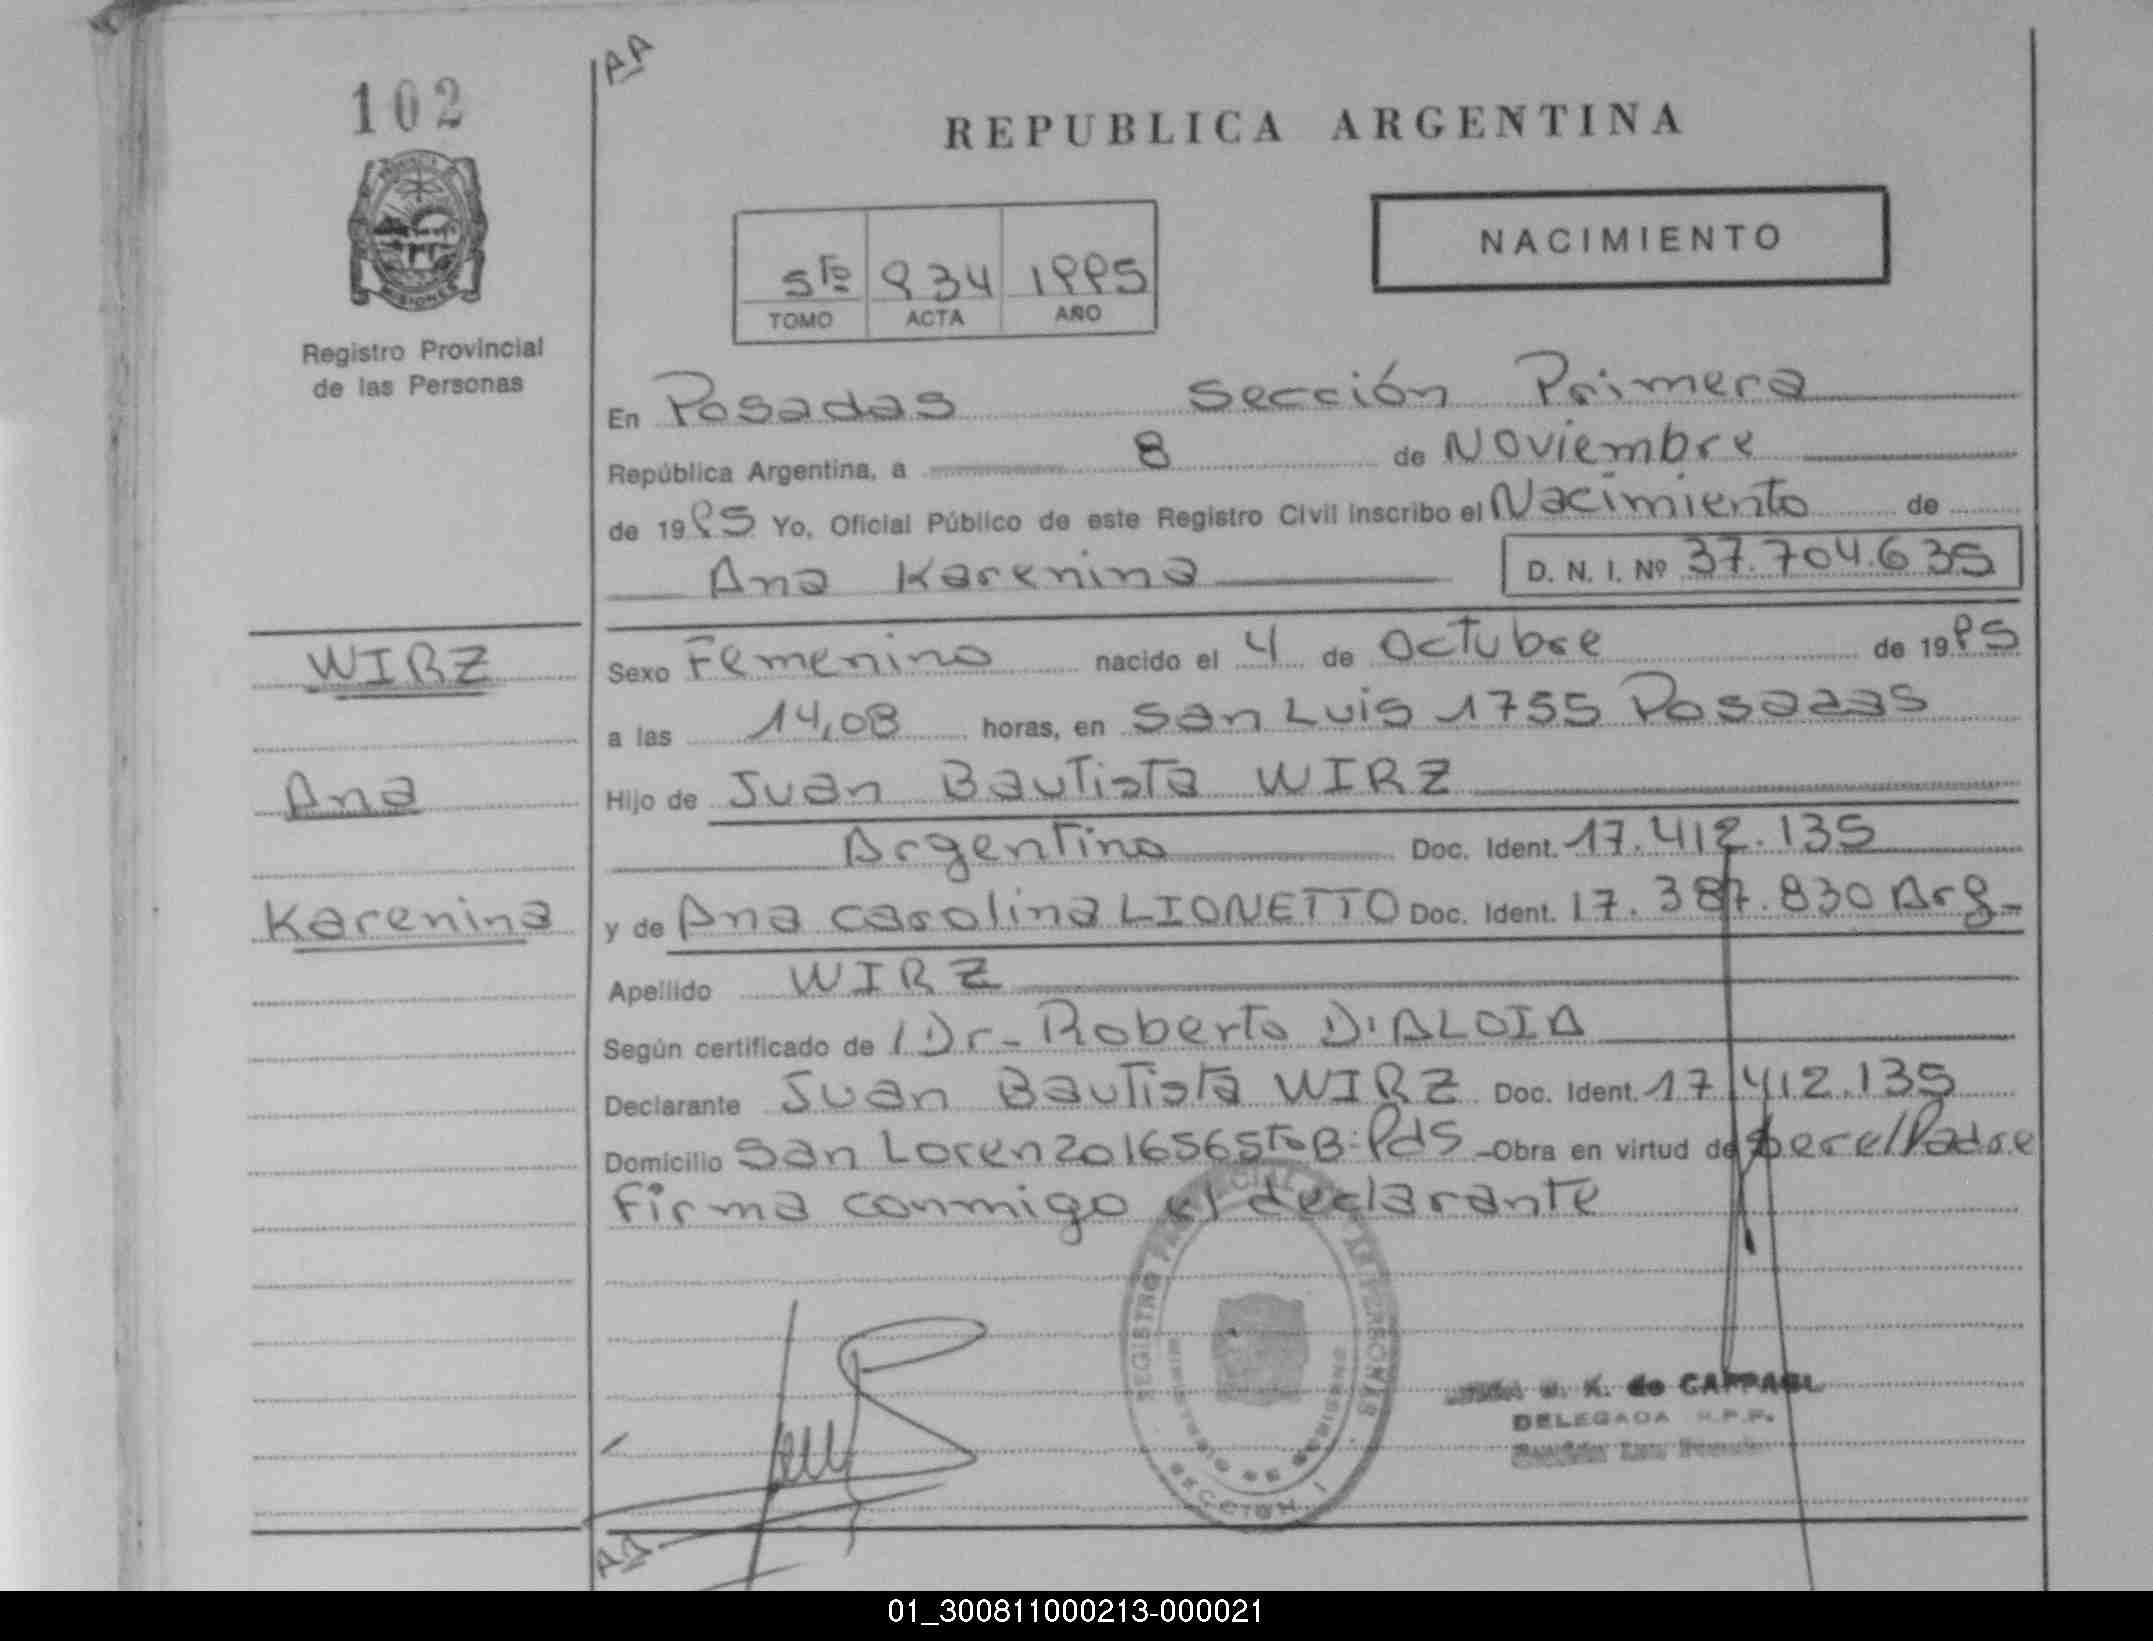 102
AA
REPUBLICA ARGENTINA
NACIMIENTO
5to 934 1995
TOMO ACTA AÑO
Registro Provincial
de las Personas
En Posadas Sección Primera
República Argentina, a 8 de Noviembre
de 1995 Yo, Oficial Público de este Registro Civil inscribo el Nacimiento de
Ana Karenina D. N. I. Nº 37.704.635
WIRZ
Ana
Karenina
Sexo Femenino nacido el 4 de Octubre de 1995
a las 14,08 horas, en San Luis 1755 Posadas
Hijo de Juan Bautista WIRZ
Argentino Doc. Ident. 17.412.135
y de Ana Carolina LIONETTO Doc. Ident. 17.387.830 Arg-
Apellido WIRZ
Según certificado de Dr- Roberto D'ALOIA
Declarante Juan Bautista WIRZ Doc. Ident. 17.412.135
Domicilio San Lorenzo 1656 5to B-Pds -Obra en virtud de ser el Padre
Firma conmigo el declarante
REGISTRO PROVINCIAL DE LAS PERSONAS
MINISTERIO DE GOBIERNO
MISIONES
SECCION 1
K. de CAPPAGL
DELEGADA R.P.P.
01_300811000213-000021